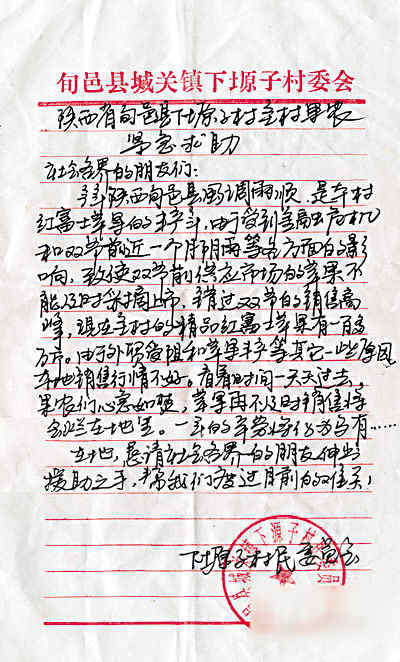 旬邑县城关镇下塬子村委会
陕西省旬邑县下塬子村全村果农
紧急求助
社会各界的朋友们:
今年陕西旬邑县风调雨顺,是本村
红富士苹果的丰年,由于受到金融危机
和双节前近一个月阴雨等各方面的影
响,致使双节前供应市场的苹果不
能及时采摘上市,错过双节的销售高
峰,现在全村的精品红富士苹果有一百多
万斤。由于外贸受阻和苹果丰产等其它一些原因
本地销售行情不好。看着时间一天天过去,
果农们心急如焚,苹果再不及时销售将
会烂在地里。一年的辛劳将化为乌有……
在此,恳请社会各界的朋友伸出
援助之手,帮我们度过目前的难关!
下塬子村民委员会
县城关镇下塬子村民委员